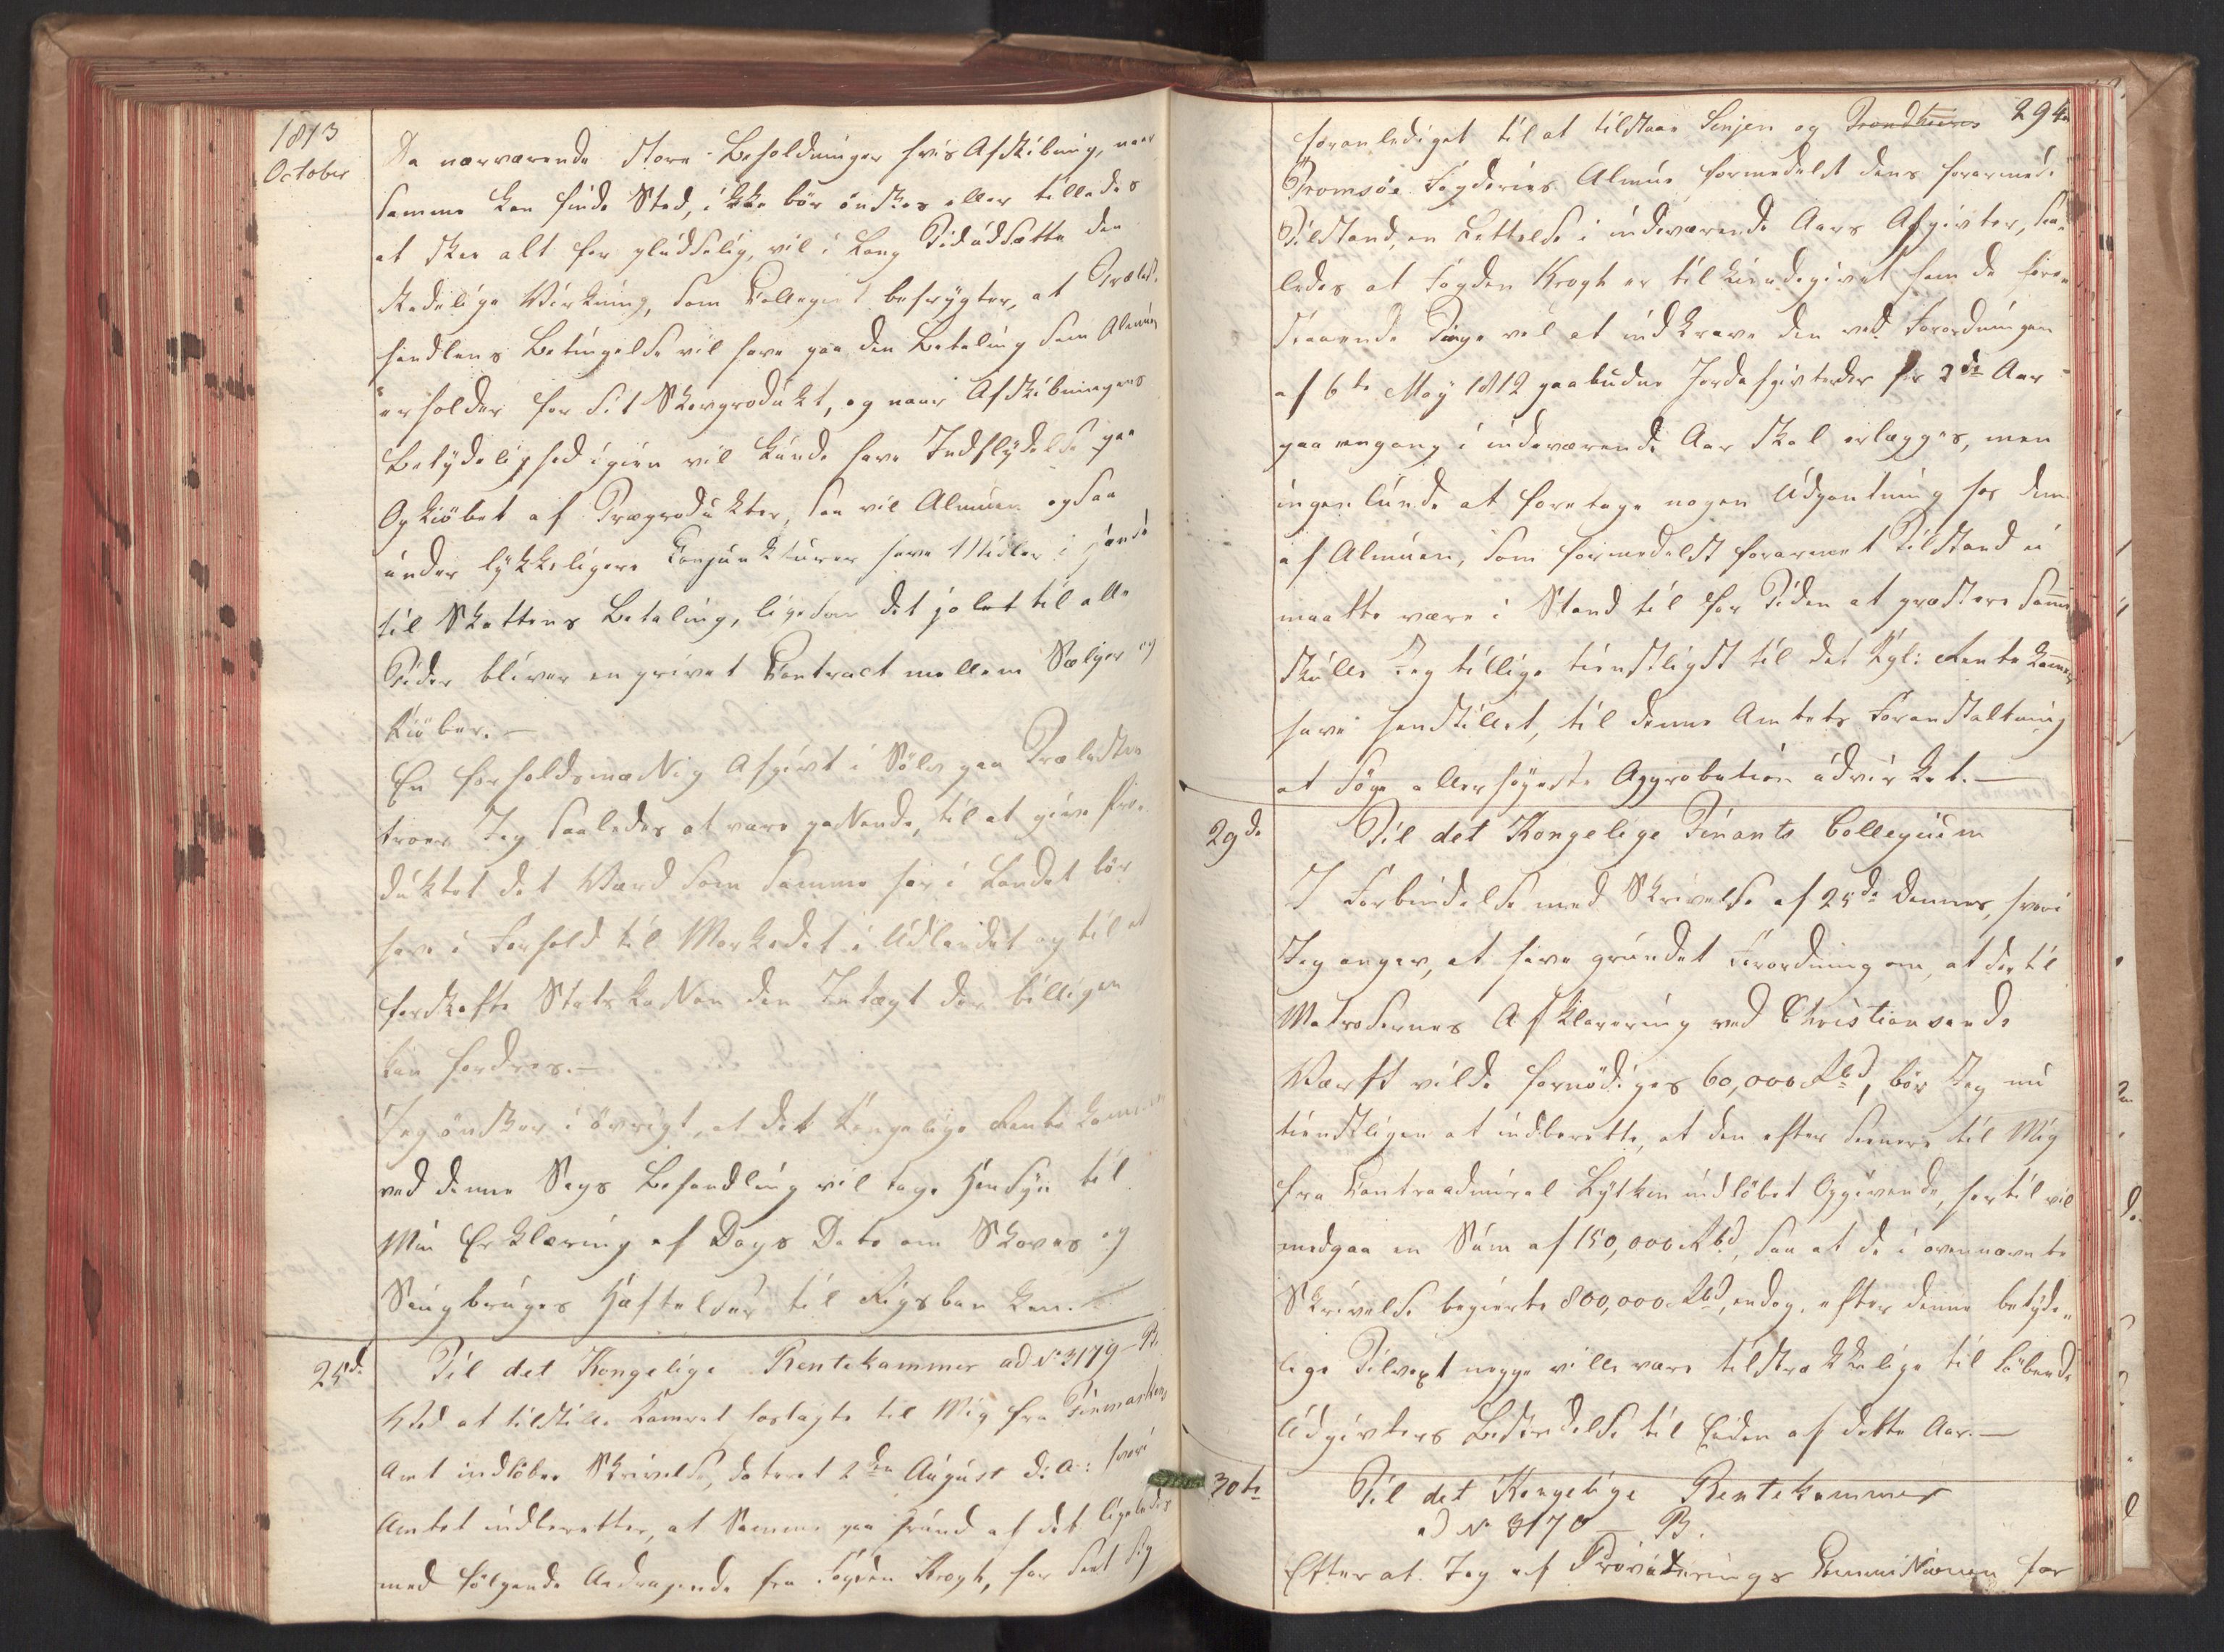 1813
October
Da nærværende store Beholdninger hvis Afskibning, naar
samme kan finde Sted, ikke bör önskes eller tillades
at skee alt for pludselig, vil i Lang Tid udsætte den
skadelige Virkning, som Collegiet befrygter, at Trælast-
handlens Betingelse vil have paa den Betaling som Almuen
erholder for sit Skovprodukt, og naar Afskibningens
Betydelighed igien vil kunde have Indflydelse paa
Opkiöbet af Træprodukter, saa vil Almuen ogsaa
under lykkeligere Conjunkturer have Midler i hænde
til Skattens Betaling, ligesom det jo til alle
Tider bliver en privat Contract mellem Sælger og
Kiöber.—
En forholdsmæssig Afgivt i Sölv paa Trælasten
troer Jeg saaledes at være passende, til at give Pro-
duktet det Værd som samme her i Landet bör
have i Forhold til Markedet i Udlandet og til at
forskaffe Statskassen den Indtægt der billigen
kan fordres.—
Jeg önsker i övrigt, at det Kongelige Rentekammer
ved denne Sags Behandling vil tage Hensyn til
Min Erklæring af Dags Dato om Skoves og
Saugbruges Hæftelser til Rigsbanken.—
25de Til det Kongelige Rentekammer ad No 3179 - B.
Ved at tilstille Kamret hoslagte til Mig fra Finmarkens
Amt indlöbne Skrivelse, dateret 2den August d: A: hvori
Amtet indberetter, at Samme paa Grund af det ligeledes
med fölgende Andragende fra Fogden Krogh, har seet sig
294
foranlediget til at tilstaae Senjen og Trondhiems
Tromsöe Fogderies Almue formedelst dens forarmede
Tilstand, en Lettelse i indeværende Aars Afgivter, saa-
ledes at Fogden Krogh er tilkiendegivet ham de fore-
staaende Tinge vel at indkræve den ved Forordningen
af 6te May 1812 paabudne Jordafgivt der for 2de Aar
paa engang i indeværende Aar skal erlægges, men
ingenlunde at foretage nogen Udpantning hos dem
af Almuen, som formedelst forarmet Tilstand ei
maatte være i Stand til for Tiden at præstere samme
skulle Jeg tillige tienstligst til det Kgl: Rentekammer
have henstillet, til denne Amtets Foranstaltning
at söge allerhöyeste Approbation udvirket.—
29de Til det Kongelige Finants Collegium
I Forbindelse med Skrivelse af 25de dennes, hvori
Jeg angav, at have grundet Forordning om, at der til
Matrosernes Afklarering ved Christiansands
Værft vilde fornödiges 60,000 Rbd, bör Jeg nu
tienstligen at indberette, at den efter seenere til Mig
fra Contraadmiral Lütken indlöbet Opgivende, hertil vil
medgaa en Sum af 150,000 Rbd, saa at de i ovennævnte
Skrivelse begierte 800,000 Rbd, endog, efter denne betyde-
lige Tilvext neppe ville være tilstrækkelige til löbende
Udgivters Bestridelse til Enden af dette Aar.—
30te Til det Kongelige Rentekammer
ad No 3170 — B.
Efter at Jeg af Provideerings Commissionen har